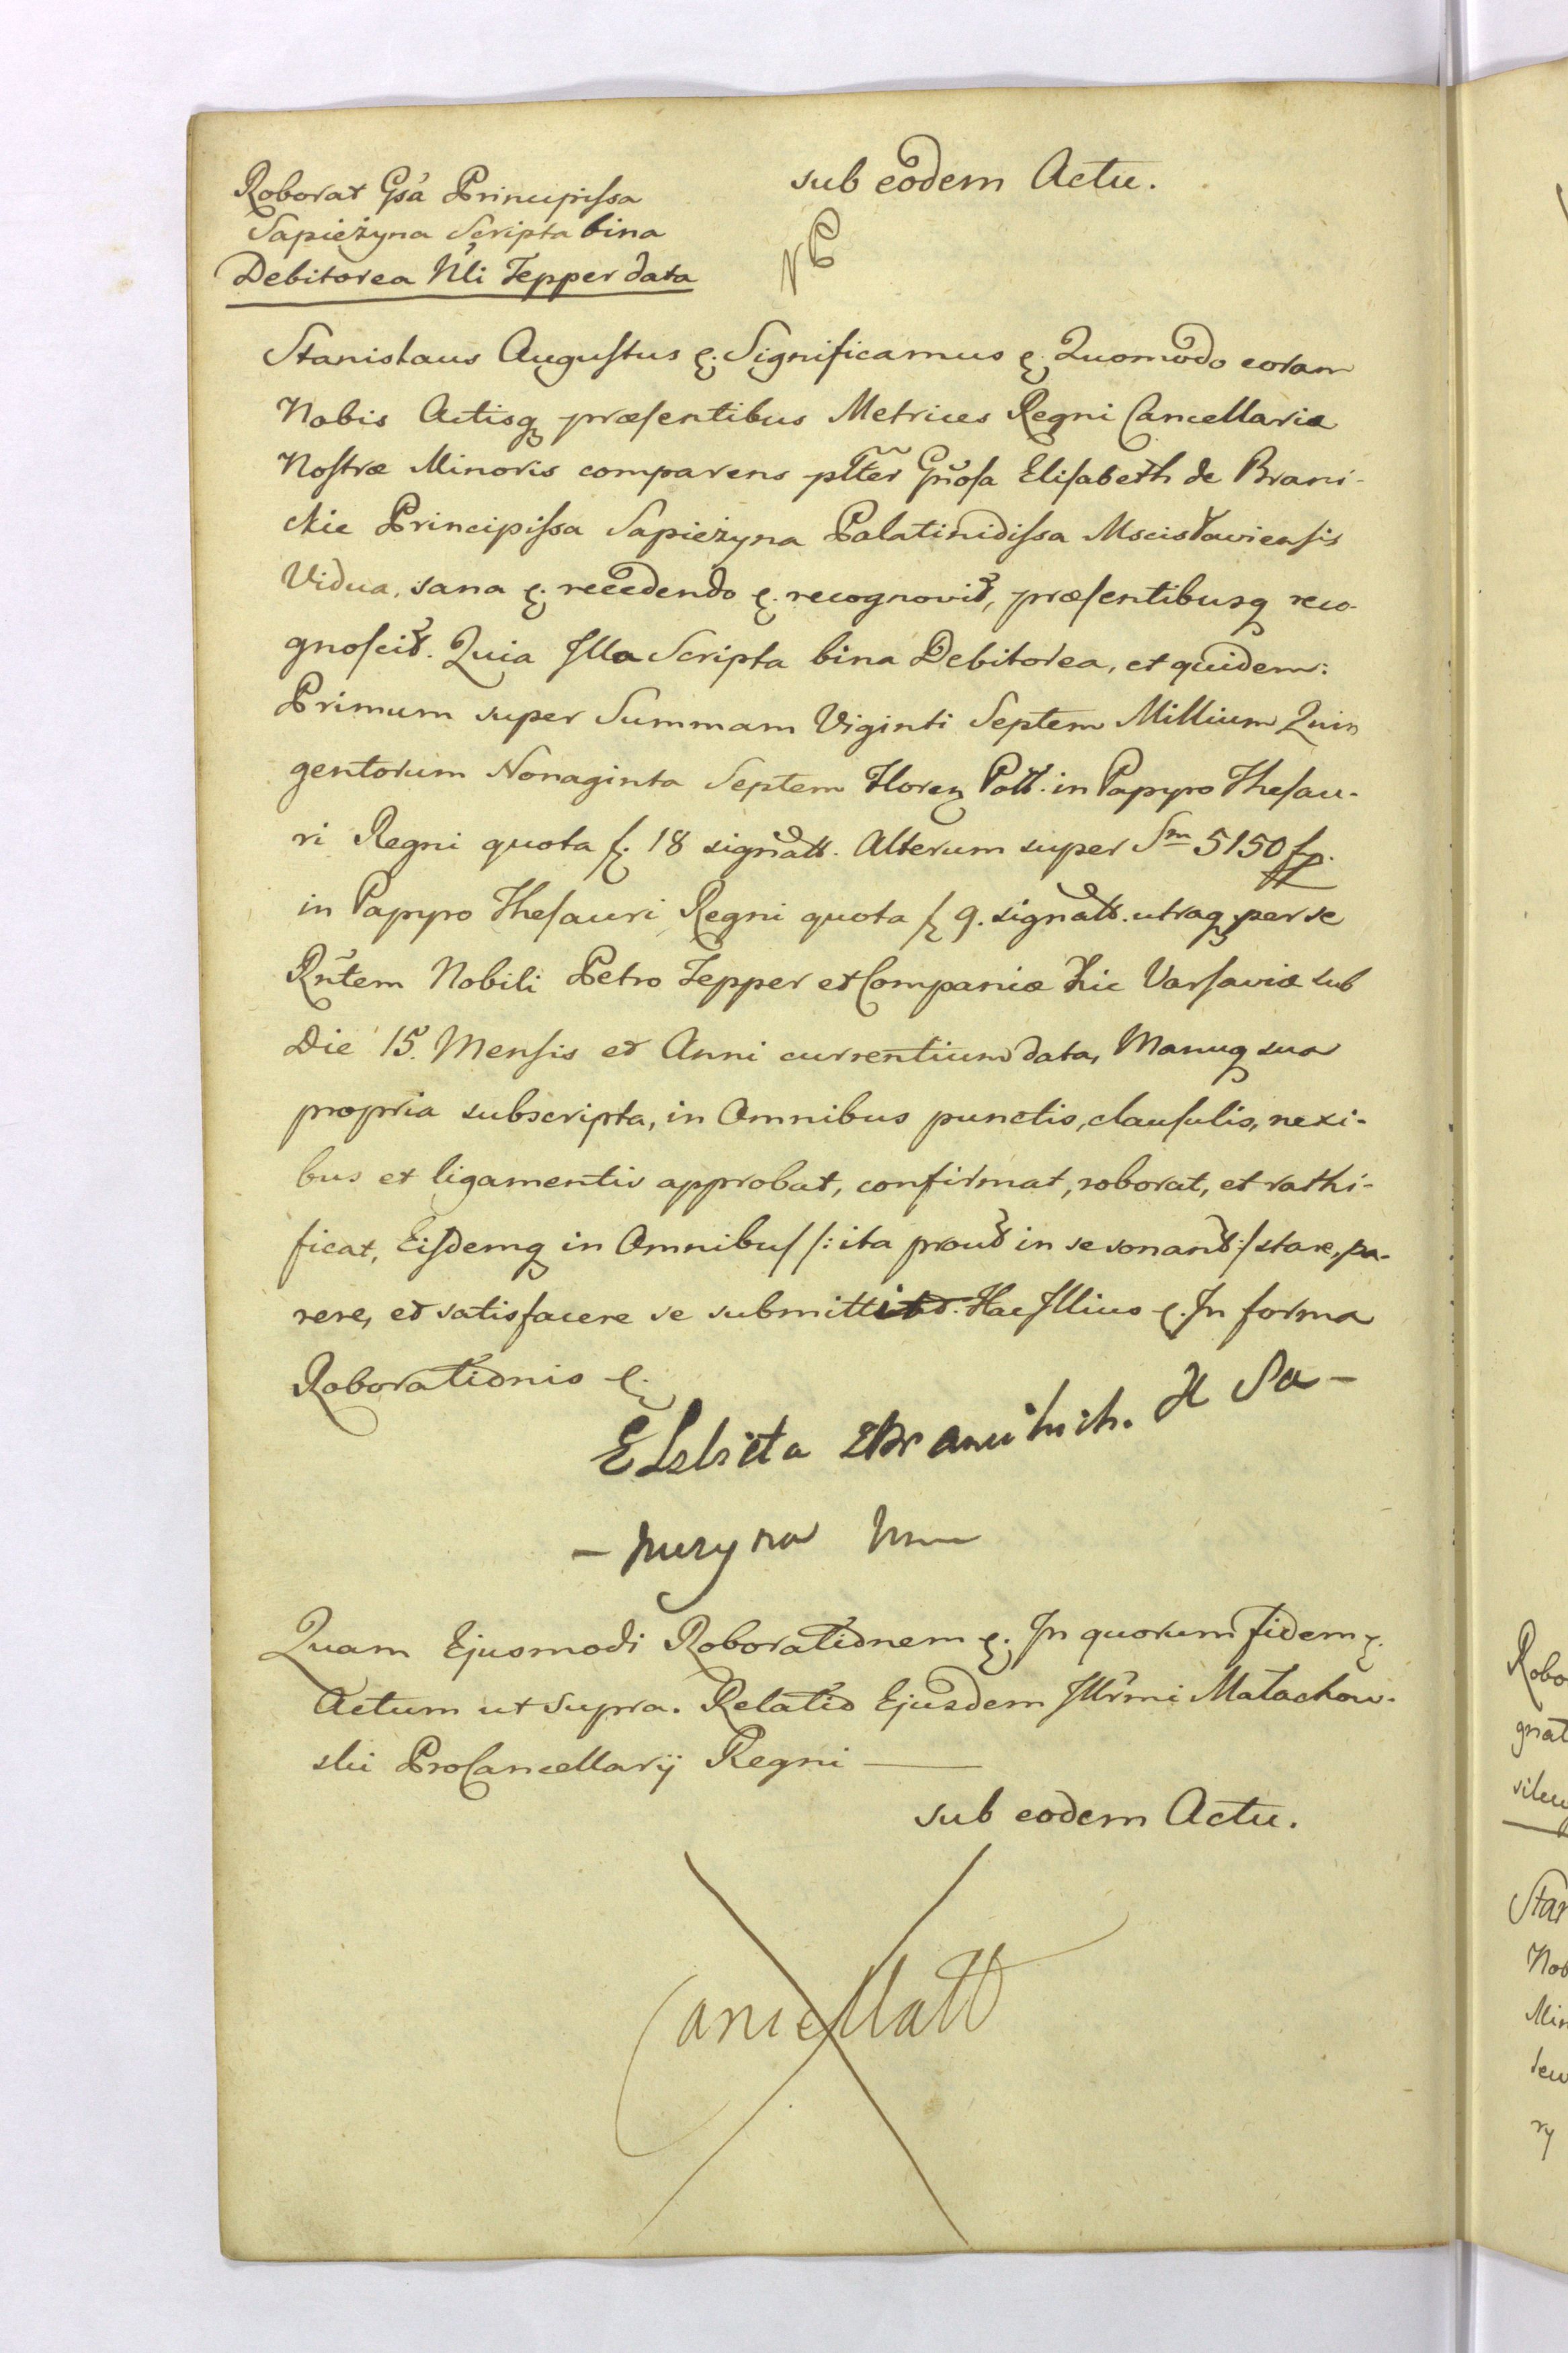 sub eodem Actu.
Roborat Gsa Principissa
Sapieżyna Scripta bina
Debitorea Nli Tepper data
Stanislaus Augustus &. Significamus &. Quomodo coram
Nobis Actisq præsentibus Metrices Regni Cancellariæ
Nostræ Minoris comparens pltter Gnosa Elisabeth de Brani-
ckie Principissa Sapieżyna Palatinidissa Mscisławiensis
Vidua, sana &. recedendo &. recognovit, præsentibusq reco-
gnoscit. Quia Illa Scripta bina Debitorea, et quidem:
Primum super Summam Viginti Septem Millium Quin
gentorum Nonaginta Septem Floren Poll. in Papyro Thesau-
ri Regni quota f. 18 signatt. Alterum super Sm 5150 fp.
in Papyro Thesauri Regni quota f 9. signatt. utraq per se
Rntem Nobili Petro Tepper et Companiæ hic Varsaviæ sub
Die 15. Mensis et Anni currentium data, Manuq sua
propria subscripta, in Omnibus punctis, clausulis, nexi-
bus et ligamentis approbat, confirmat, roborat, et rathi-
ficat, Eisdemq in Omnibus /: ita prout in se sonant :/ stare, pa-
rere, et satisfacere se submittit. Hac Illius &. In forma
Roborationis &.
Elżbieta Branickich. X Sa-
-pieżyna
Quam Ejusmodi Roborationem &. In quorum fidem &.
Actum ut supra. Relatio Ejusdem Illrmi Małachow-
ski ProCancellarij Regni
sub eodem Actu.
Cancellatt
Robo
gnat
Star
Nob
Min
ry